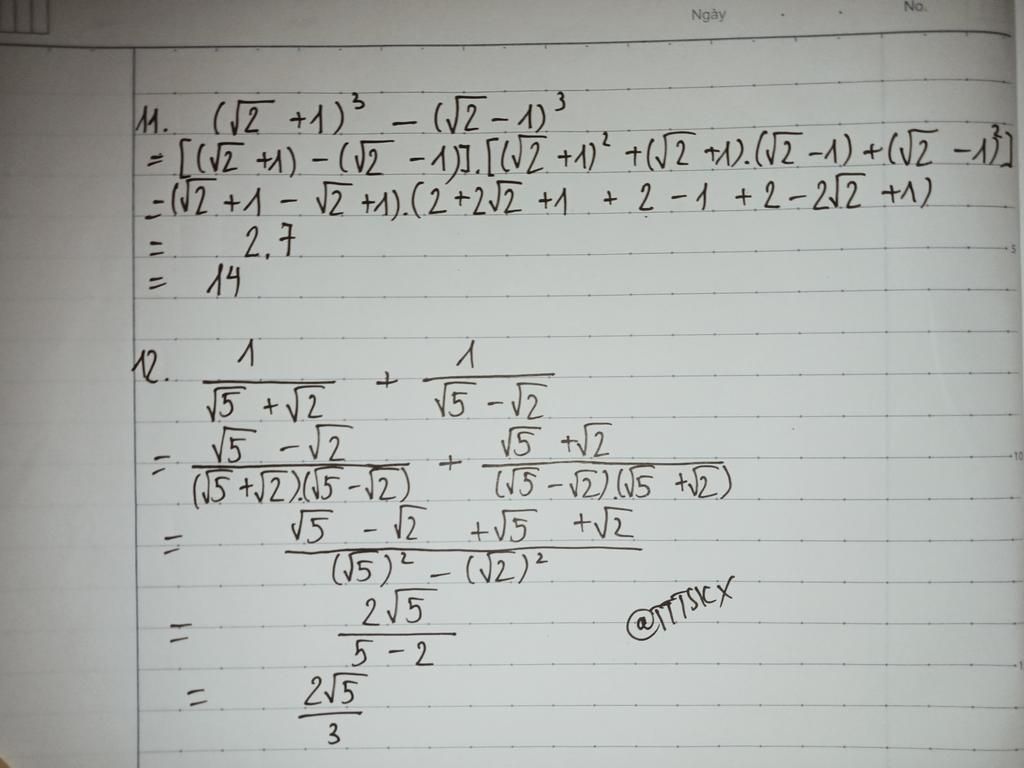 Ngày No.
11. (√2 +1)³ – (√2 – 1)³
= [(√2 +1) – (√2 – 1)].[(√2 +1)² +(√2 +1).(√2 – 1) +(√2 – 1)²]
= (√2 + 1 – √2 +1).(2 + 2√2 + 1 + 2 – 1 + 2 – 2√2 +1)
= 2.7
= 14
12. 1/(√5 +√2) + 1/(√5 – √2)
= (√5 – √2)/((√5 +√2).(√5 – √2)) + (√5 +√2)/((√5 – √2).(√5 +√2))
= (√5 – √2 +√5 +√2)/((√5)² – (√2)²)
= 2√5/(5 – 2)
@TTTSKX
= 2√5/3
5
10